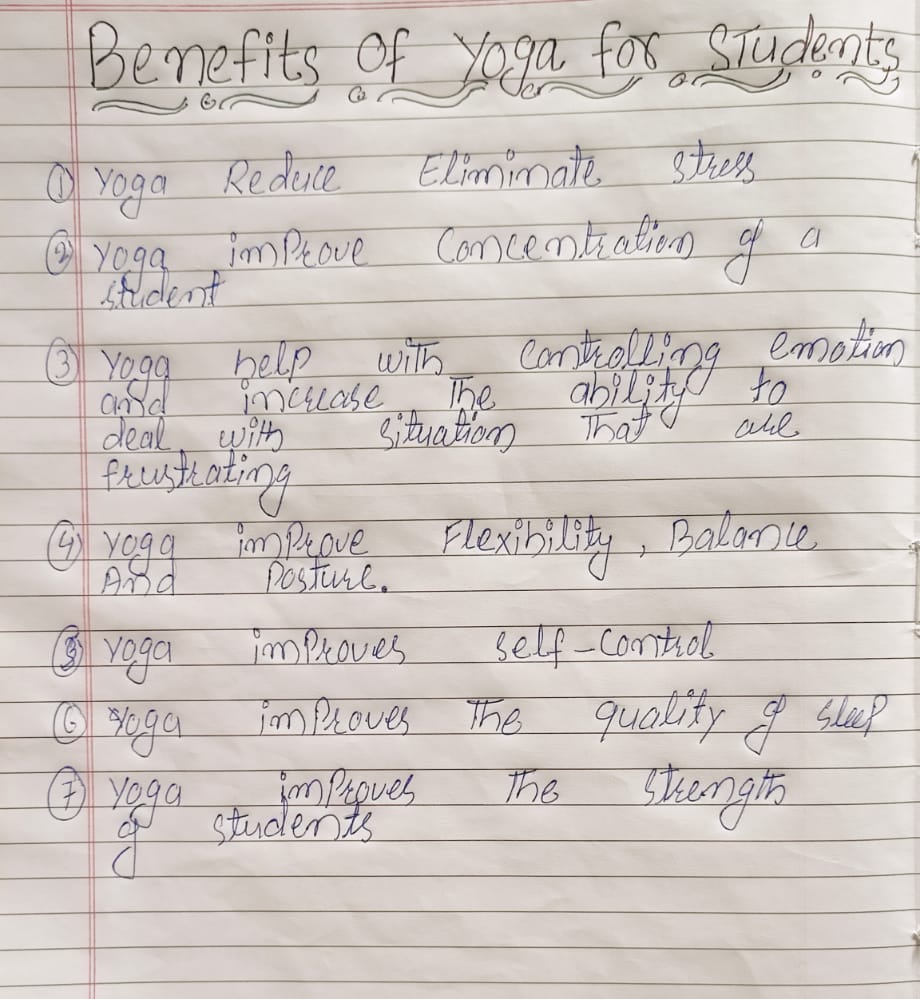 Benefits Of Yoga for Students
① Yoga Reduce Eliminate stress
② Yoga improve Concentration of a
student
③ Yoga help with controlling emotion
and increase The ability to
deal with situation That are
frustrating
④ Yoga improve Flexibility, Balance
And Posture.
⑤ Yoga improves self-control
⑥ Yoga improves The quality of sleep
⑦ Yoga improves The strength
of students